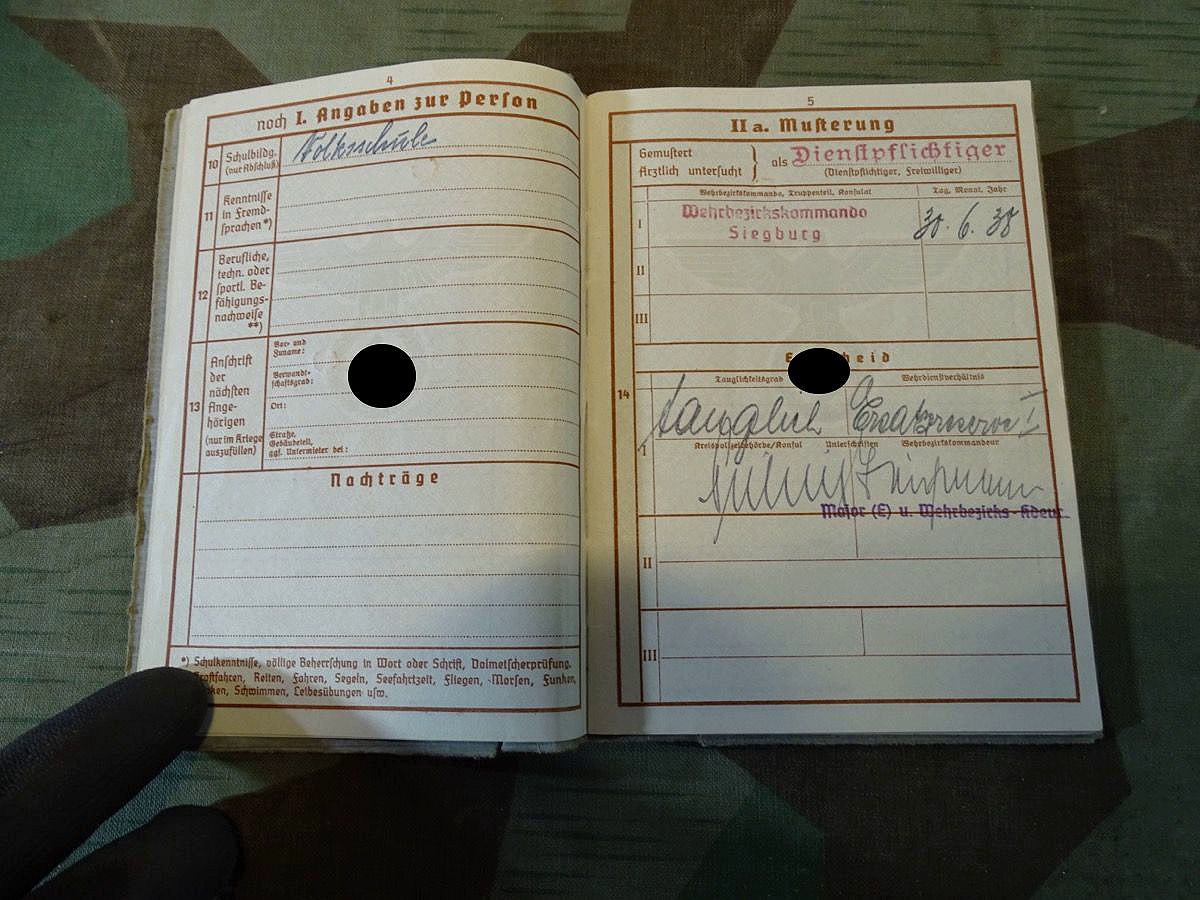 4
noch I. Angaben zur Person
10
Schulbildg.
(nur Abschluß)
Volksschule
11
Kenntnisse
in Fremd-
sprachen*)
12
Berufliche,
techn. oder
sportl. Be-
fähigungs-
nachweise
**)
13
Anschrift
der
nächsten
Ange-
hörigen
(nur im Kriege
auszufüllen)
Vor- und
Zuname:
Verwandt-
schaftsgrad:
Ort:
Straße,
Gebäudeteil,
ggf. Untermieter bei:
Nachträge
*) Schulkenntnisse, völlige Beherrschung in Wort oder Schrift, Dolmetscherprüfung.
Kraftfahren, Reiten, Fahren, Segeln, Seefahrtzeit, Fliegen, Morsen, Funken,
Schwimmen, Leibesübungen usw.
5
IIa. Musterung
Gemustert
Ärztlich untersucht
als Dienstpflichtiger
(Dienstpflichtiger, Freiwilliger)
Wehrbezirkskommando, Truppenteil, Konsulat
Tag, Monat, Jahr
I
Wehrbezirkskommando
Siegburg
30. 6. 38
II
III
14
Tauglichkeitsgrad
Wehrdienstverhältnis
tauglich Ersatzreserve I
Kreispolizeibehörde/Konsul Unterschriften Wehrbezirkskommandeur
I
Major (E) u. Wehrbezirks-Kdeur.
II
III